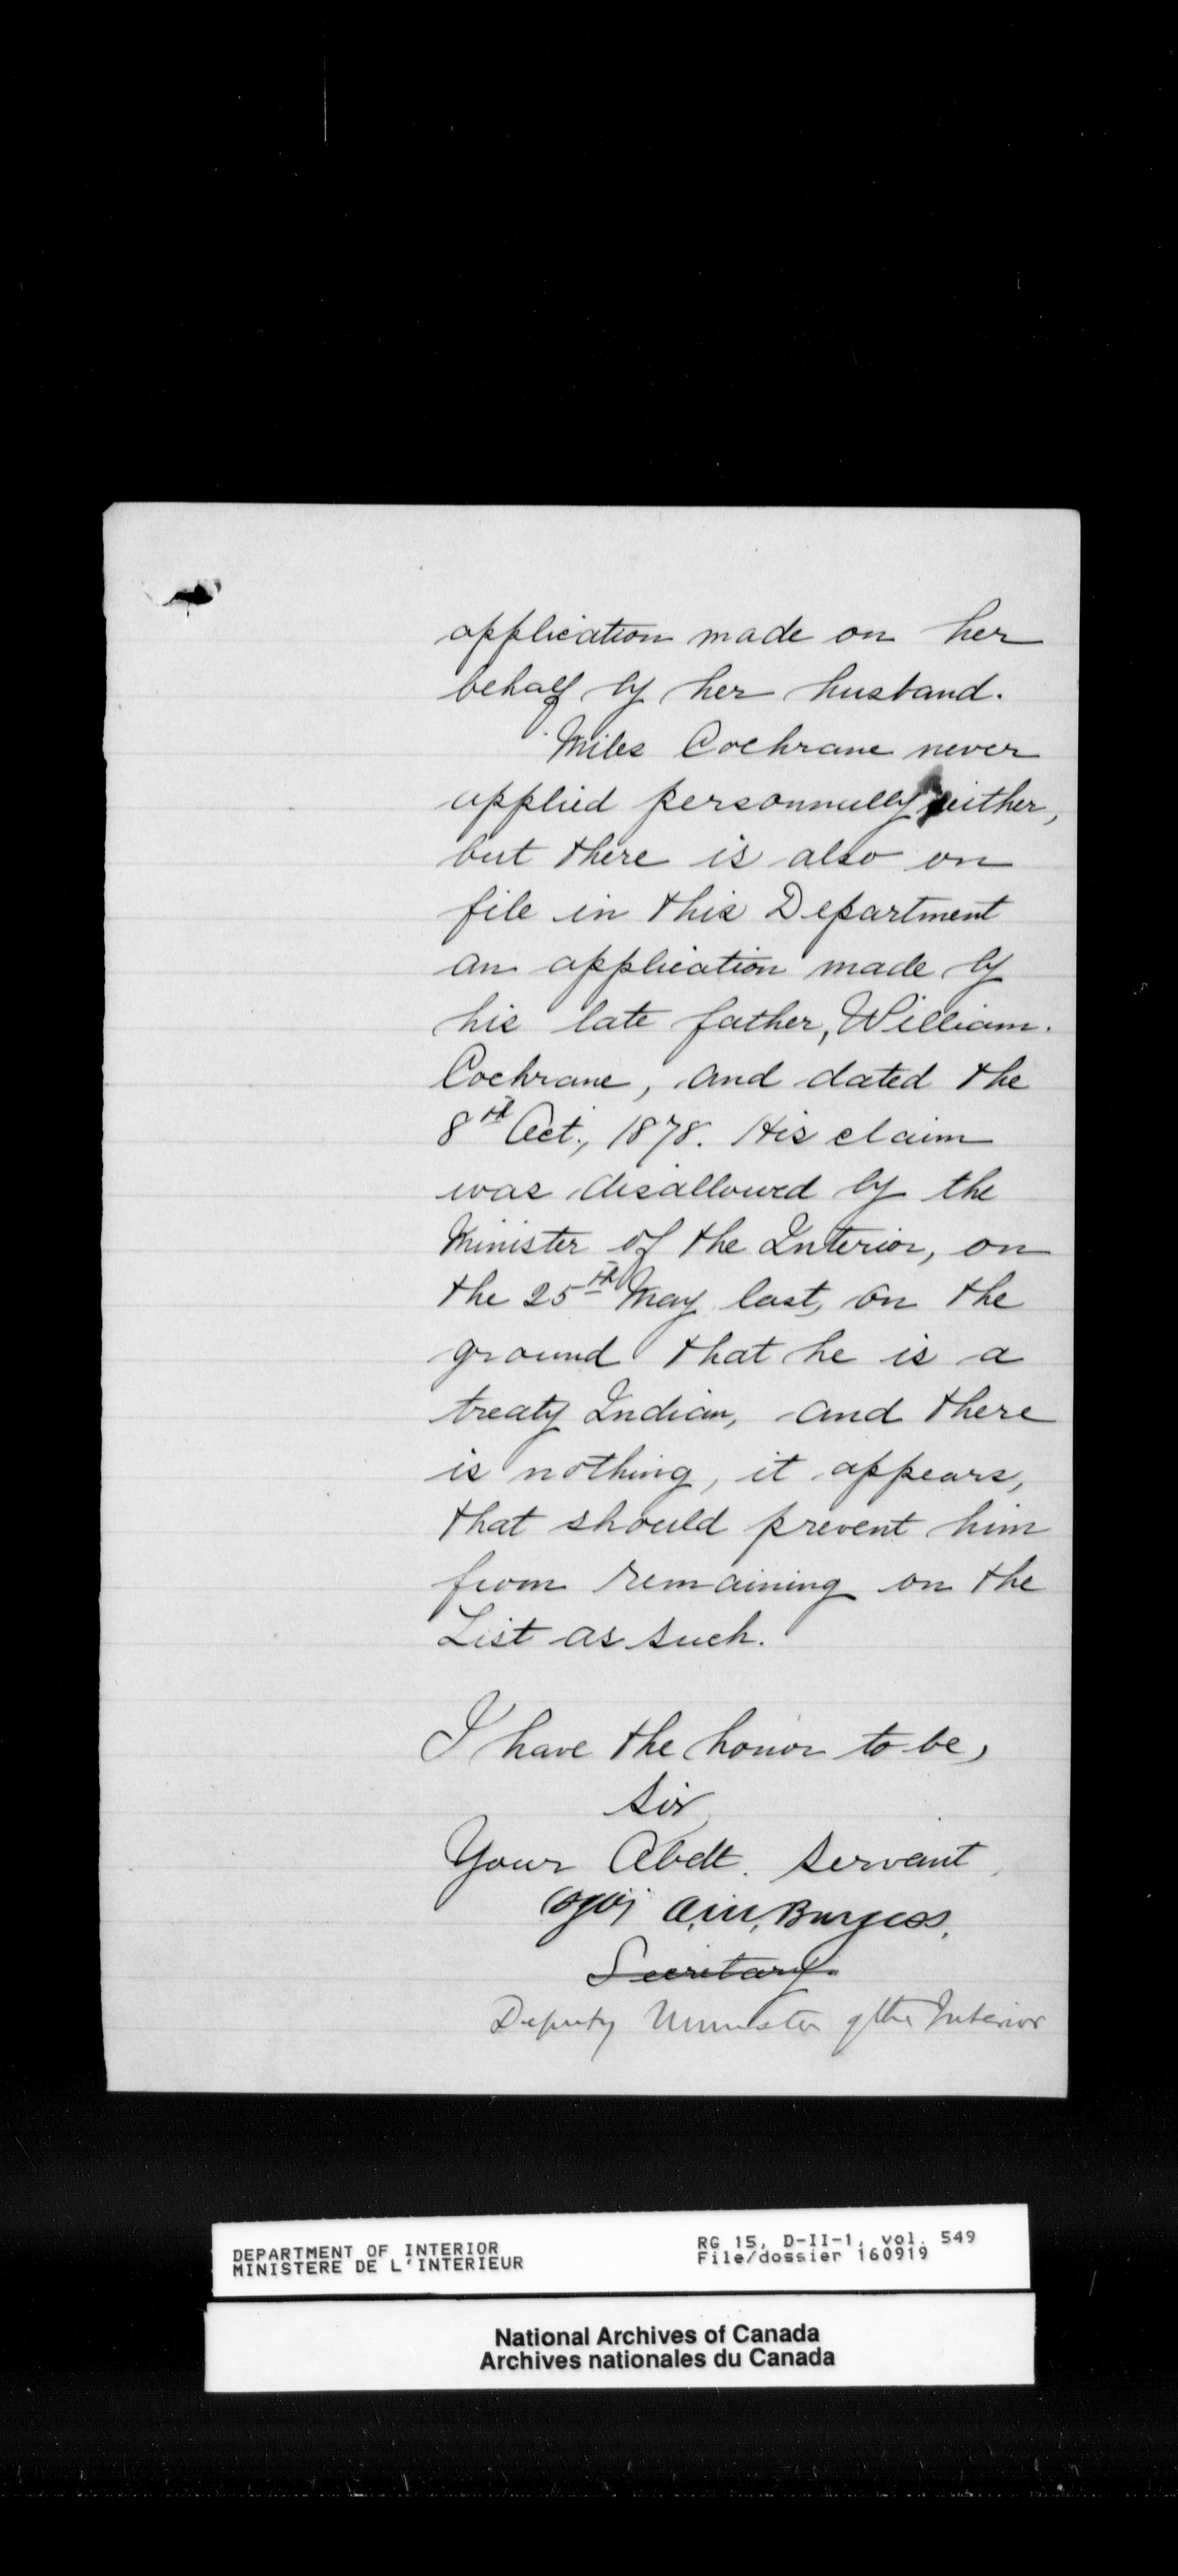 application made on her
behalf by her husband.
Miles Cochrane never
applied personnally either,
but there is also on
file in this Department
an application made by
his late father, William.
Cochrane, and dated the
8th Oct., 1878. His claim
was disallowed by the
Minister of the Interior, on
the 25th May last, on the
ground that he is a
treaty Indian, and there
is nothing, it appears,
that should prevent him
from remaining on the
List as such.
I have the honor to be,
Sir
Your Obdt. Servant,
(sgd) A.M. Burgess.
Secretary.
Deputy Minister of the Interior
DEPARTMENT OF INTERIOR
MINISTERE DE L'INTERIEUR
RG 15, D-II-1, vol. 549
File/dossier 160919
National Archives of Canada
Archives nationales du Canada